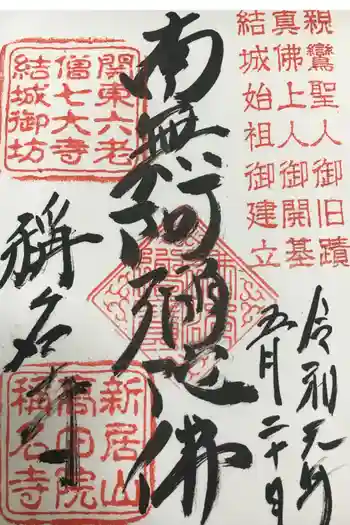 親鸞聖人御旧蹟
真佛上人御開基
結城始祖御建立
令和元年
五月二十日
南無阿弥陀佛
關東六老
僧七大寺
結城御坊
稱名寺
新居山
高田院
稱名寺